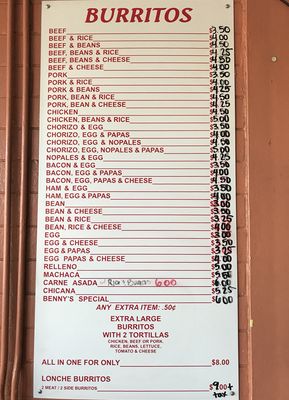 BURRITOS
BEEF $3.50
BEEF & RICE $4.00
BEEF & BEANS $4.50
BEEF, BEANS & RICE $4.25
BEEF, BEANS & CHEESE $4.50
BEEF & CHEESE $4.00
PORK $3.50
PORK & RICE $4.00
PORK & BEANS $4.25
PORK, BEAN & RICE $4.50
PORK, BEAN & CHEESE $4.25
CHICKEN $4.50
CHICKEN, BEANS & RICE $5.00
CHORIZO & EGG $3.50
CHORIZO, EGG & PAPAS $4.00
CHORIZO, EGG & NOPALES $4.50
CHORIZO, EGG, NOPALES & PAPAS $5.00
NOPALES & EGG $4.25
BACON & EGG $3.50
BACON, EGG & PAPAS $4.00
BACON, EGG, PAPAS & CHEESE $4.50
HAM & EGG $3.50
HAM, EGG & PAPAS $4.00
BEAN $3.00
BEAN & CHEESE $3.50
BEAN & RICE $3.75
BEAN, RICE & CHEESE $4.00
EGG $3.00
EGG & CHEESE $3.50
EGG & PAPAS $3.25
EGG PAPAS & CHEESE $4.00
RELLENO $5.00
MACHACA $5.00
CARNE ASADA Rice & Beans 6.00 $6.00
CHICANA $5.25
BENNY'S SPECIAL $6.00
ANY EXTRA ITEM: .50¢
EXTRA LARGE
BURRITOS
WITH 2 TORTILLAS
CHICKEN, BEEF OR PORK,
RICE, BEANS, LETTUCE,
TOMATO & CHEESE
ALL IN ONE FOR ONLY $8.00
LONCHE BURRITOS
2 MEAT / 2 SIDE BURRITOS $9.00 +
tax